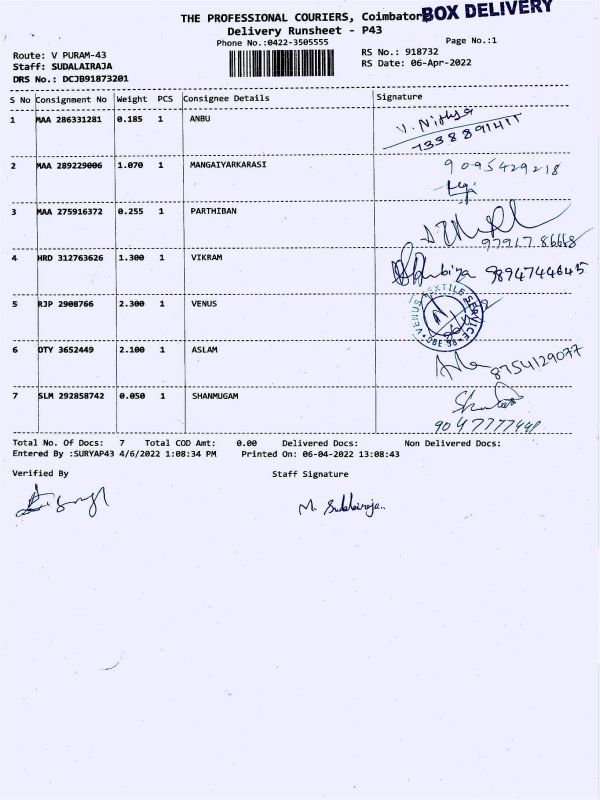 BOX DELIVERY
THE PROFESSIONAL COURIERS, Coimbator
Delivery Runsheet - P43
Phone No.:0422-3505555
Page No.:1
Route: V PURAM-43
RS No.: 918732
Staff: SUDALAIRAJA
RS Date: 06-Apr-2022
DRS No.: DCJB91873201
S No Consignment No Weight PCS Consignee Details Signature
1 MAA 286331281 0.185 1 ANBU
V. Nithya
7338891411
2 MAA 289229006 1.070 1 MANGAIYARKARASI
9095429218
3 MAA 275916372 0.255 1 PARTHIBAN
97917 86668
4 HRD 312763626 1.300 1 VIKRAM
9894744645
5 RJP 2908766 2.300 1 VENUS
VENUS TEXTILE SERVICE
CBE 38
6 OTY 3652449 2.100 1 ASLAM
8754129077
7 SLM 292858742 0.050 1 SHANMUGAM
9047777449
Total No. Of Docs: 7 Total COD Amt: 0.00 Delivered Docs: Non Delivered Docs:
Entered By :SURYAP43 4/6/2022 1:08:34 PM Printed On: 06-04-2022 13:08:43
Verified By Staff Signature
M. Sudalairaja..